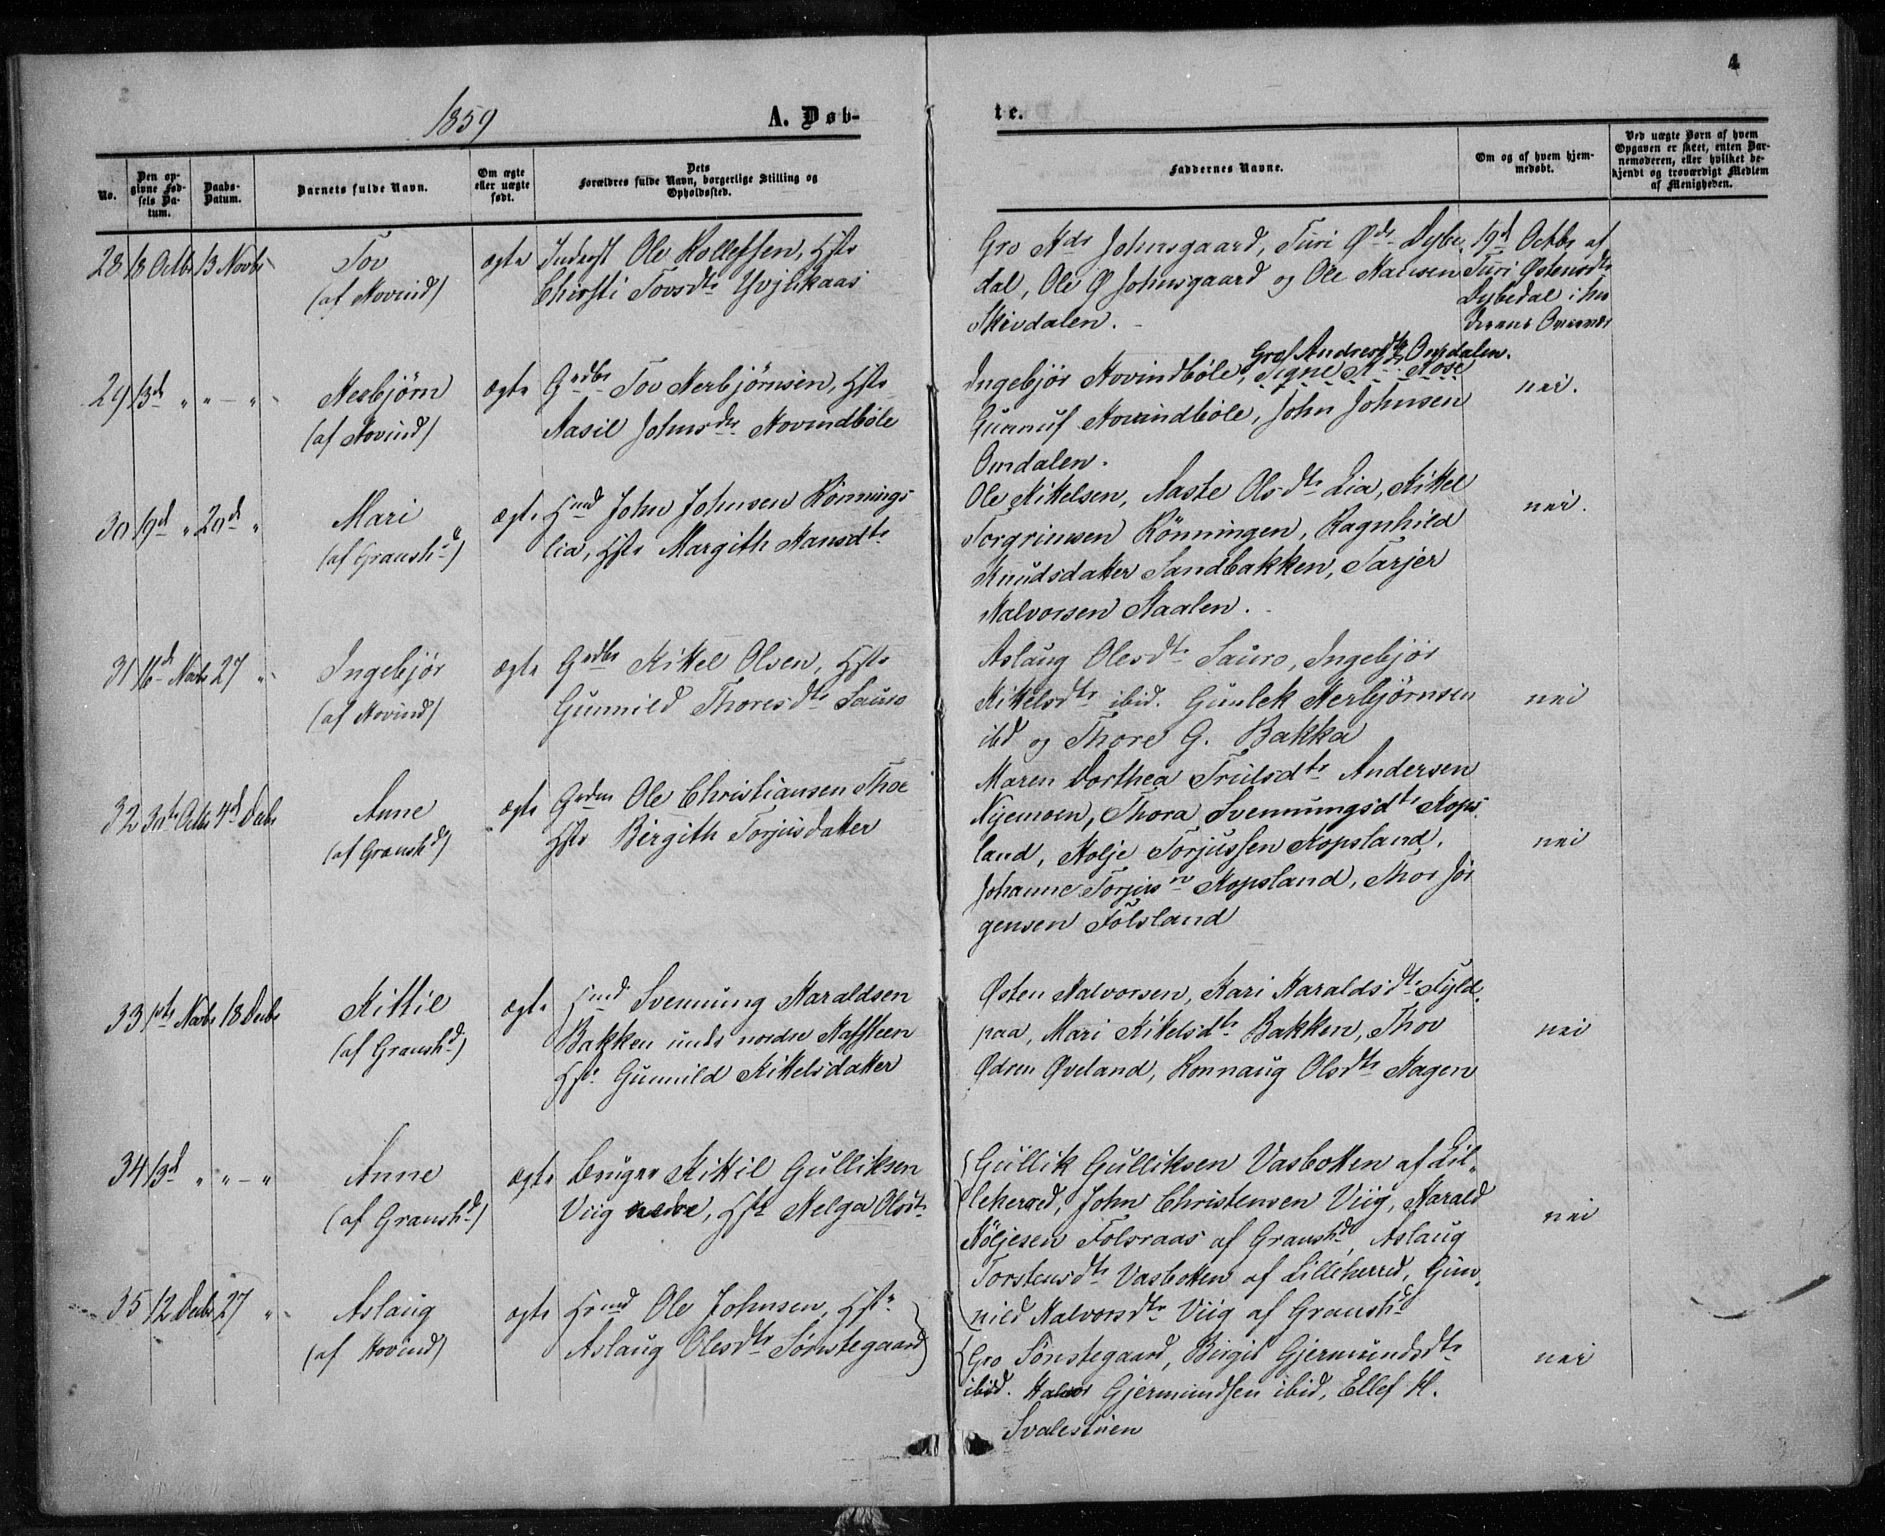 4
1859
A. Døb-
te.
No.
Den op-
givne Fød-
sels Da-
tum.
Daabs-
Datum.
Barnets fulde Navn.
Om ægte
eller uægte
født.
Dets
Forældres fulde Navn, borgerlige Stilling og
Opholdssted.
Faddernes Navne.
Om og af hvem hjem-
medøbt.
Ved uægte Børn af hvem
Opgaven er skeet, enten Bar-
nemoderen, eller hvilket be-
kjendt og troværdigt Medlem
af Menigheden.
28 18 Octbr 13 Novbr Tov ægte Inderst Ole Rollefsen, Hstr
(af Hovind) Tovsdtr
Gro Hdr Johnsgaard, Turi Ødr Dybe
dal, Ole Ø Johnsgaard og Ole Hansen
Skirdalen.
19d Octbr af
Turi Østensdtr
Dybedal
29 13d " " – " Nerbjörn ægte Grdbr Tov Nerbjørnsen, Hstr
(af Hovind) Aasil Johnsdtr Hovindböle
Gro Andersdtr Omdalen.
Ingebjör Hovindböle, Signe H Rose
Gunnuf Hovindböle, John Johnsen
Omdalen.
nei.
30 19d " 20d " Mari ægte Hmd John Johnsen Rönnings
(af Gransh.d) lia, Hstr Margith Hansdtr
Ole Kittelsen, Aaste Olsdtr Lia, Kittel
Torgrimsen Rönningen, Ragnhild
Knudsdatter Sandbakken, Tarjer
Halvorsen Haalen.
nei.
31 16d Novbr 27 " Ingebjør ægte Grdbr Kittel Olsen, Hstr
(af Hovind) Gunnild Thoresdtr Sauro
Aslaug Olesdtr Sauro, Ingebjør
Kittelsdtr ibid. Gunlek Nerbjørnsen
ibd og Thore G. Bakka
nei
32 30te Octbr 4d Decbr Anne ægte Ole Christiansen Thoe
(af Gransh.d) Hstr Birgith Torjusdatter
Maren Dorthea Trulsdtr Andersen
Nyemoen, Thora Svennungsdtr Kops-
land, Kolje Torjussen Kopsland,
Johanne Torjus Kopsland, Thor Jör
gensen Folsland
nei
33 1ste Novbr 18 Decbr Kittil ægte Hmd Svennung Haraldsen
(af Gransh.d) Bakken under nordre
Hstr Gunnild Kittelsdatter
Østen Halvorsen, Kari Haraldsdtr
paa, Mari Kittelsdtr Bakken, Thov
Øveland, Ronnaug Olsdtr Hagen
nei
34 13d " " – " Anne ægte Bruger Kittil Gulliksen
(af Gransh.d) Viig nedre, Hstr Helga Olsdtr
Gullik Gulliksen Vasbotten af Lil-
leherred, John Christensen Viig, Harald
Köljesen Folsraas af Gransh.d, Aslaug
Torstensdtr Vasbotten af Lilleherred, Gun-
nild Halvorsdtr Viig af Gransh.d
nei
35 12 Decbr 27 " Aslaug ægte Hmd Ole Johnsen, Hstr
(af Hovind) Aslaug Olesdtr Sønstegaard
Gro Sønstegaard, Birgit Gjermundsdtr
ibid. Halvor Gjermundsen ibid, Ellef H.
Svalestuen
nei